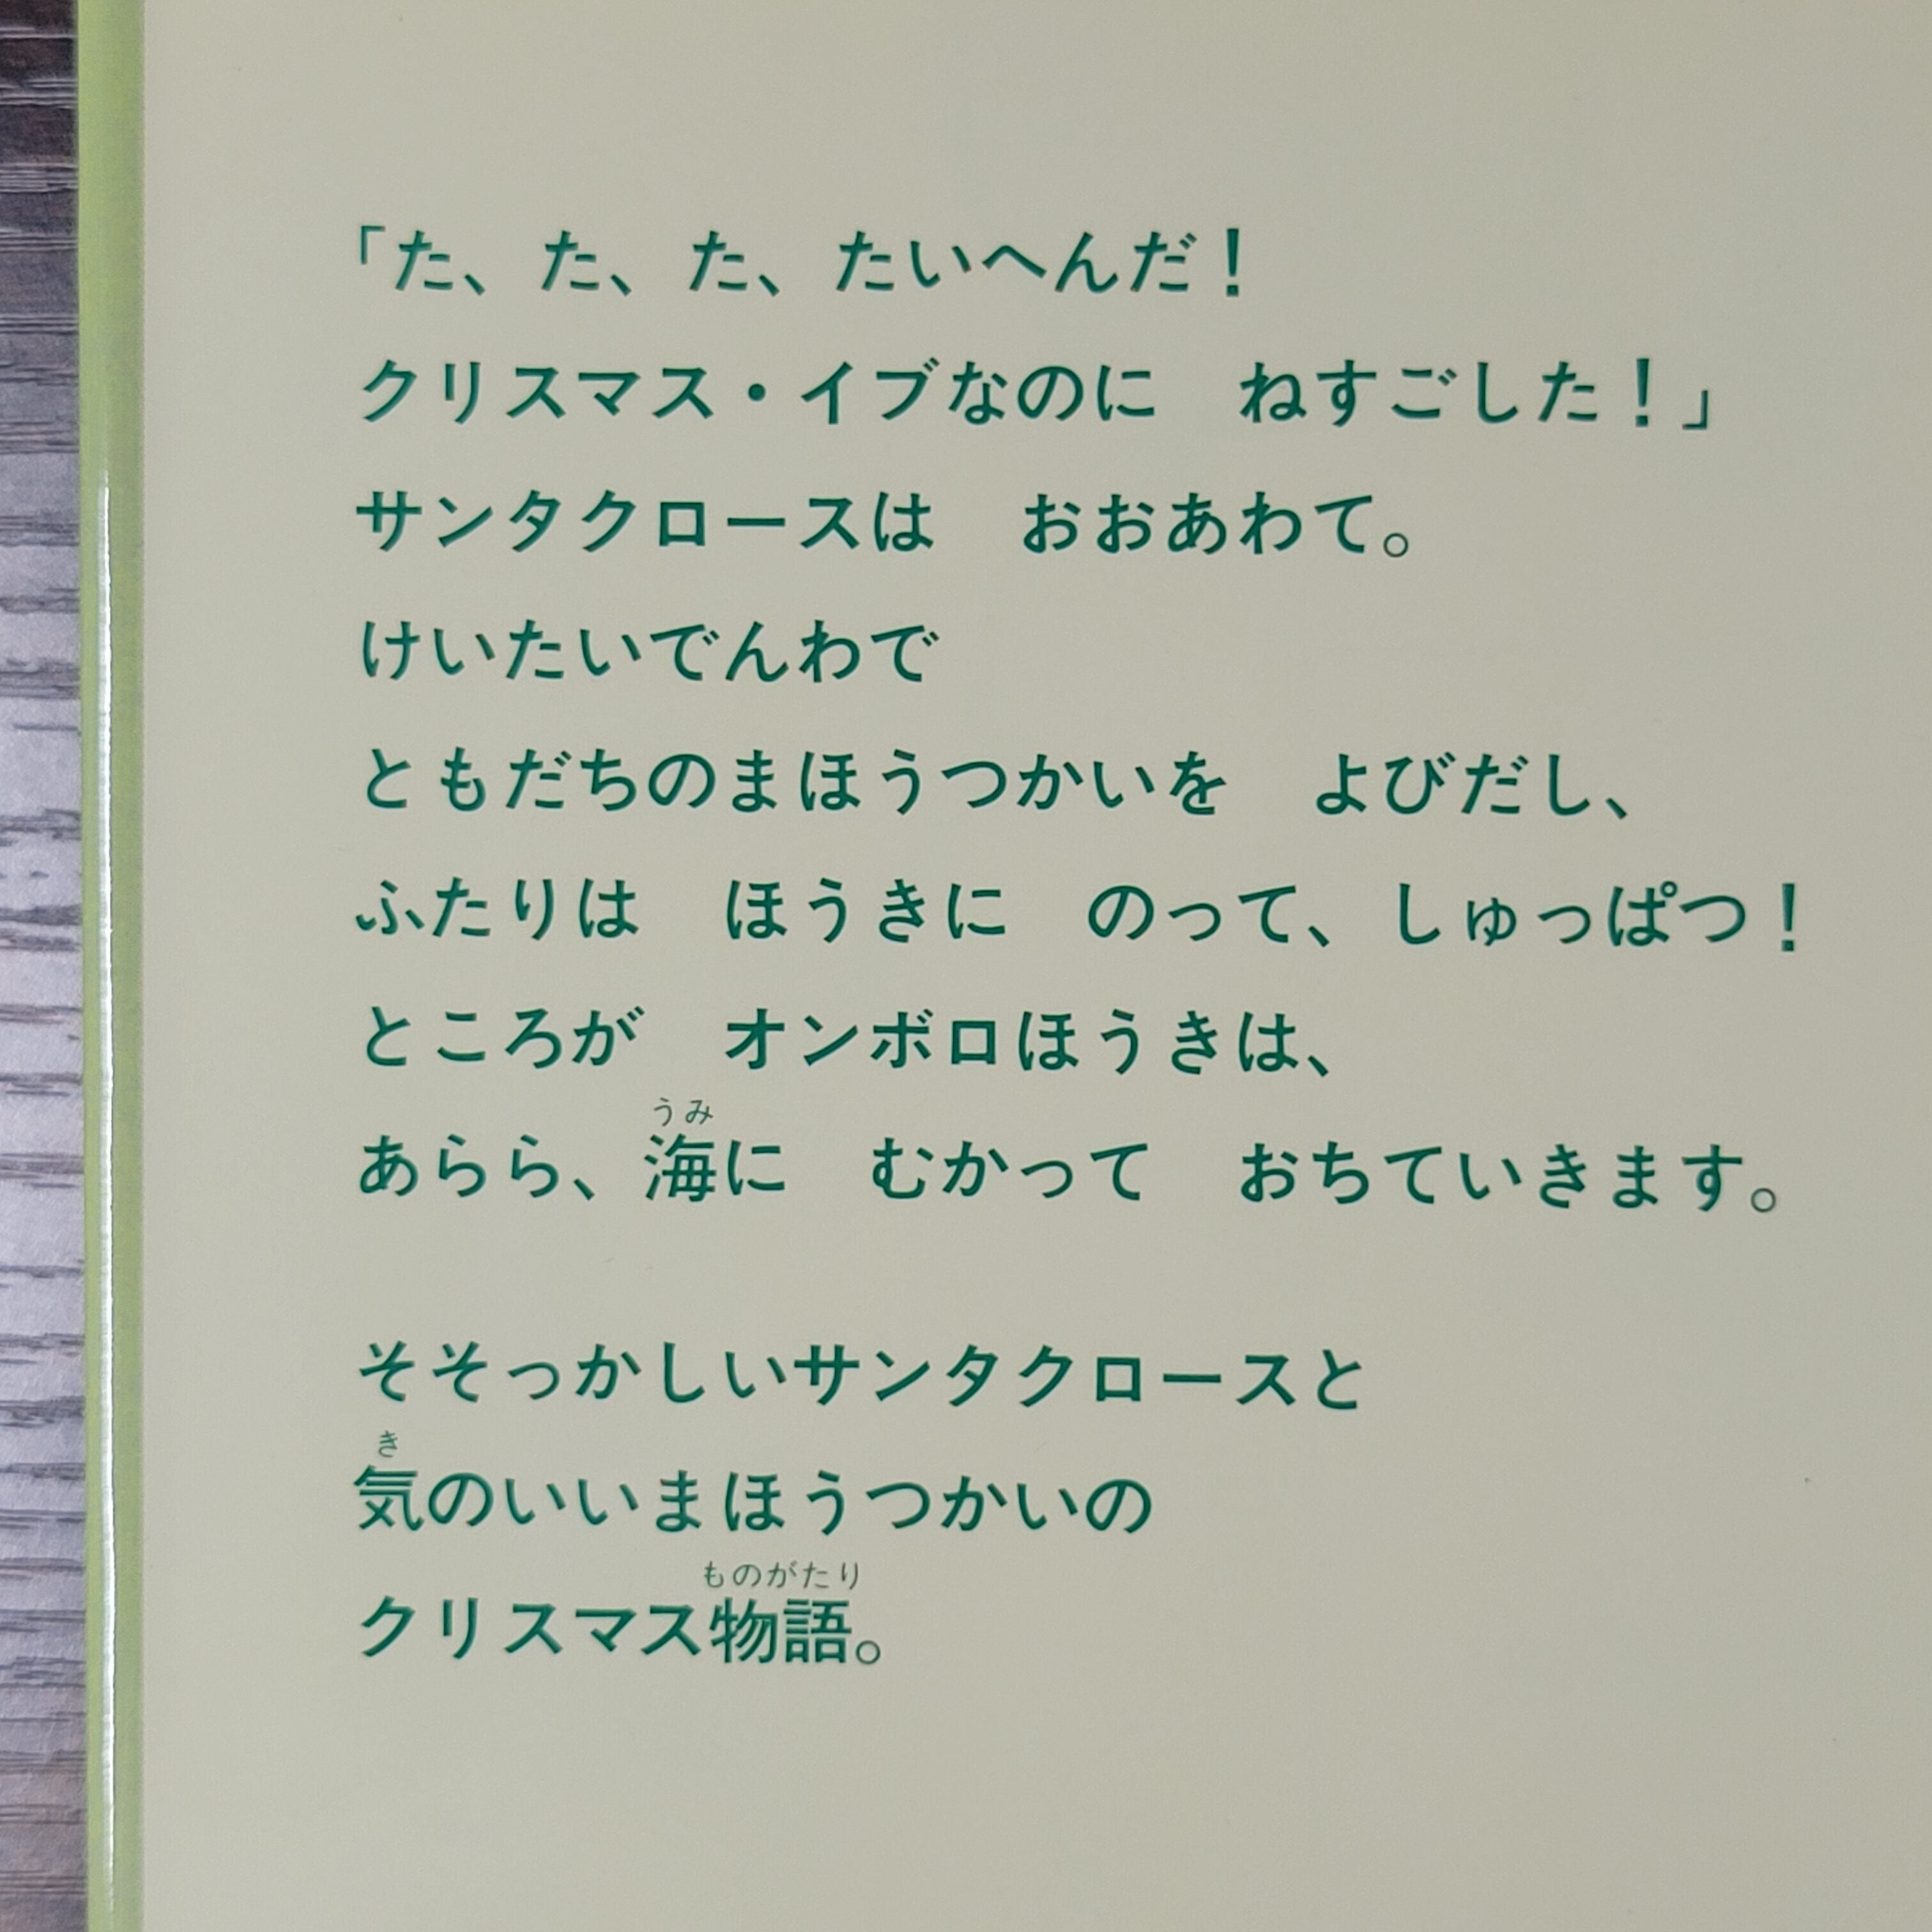 「た、た、た、たいへんだ！
クリスマス・イブなのに　ねすごした！」
サンタクロースは　おおあわて。
けいたいでんわで
ともだちのまほうつかいを　よびだし、
ふたりは　ほうきに　のって、しゅっぱつ！
ところが　オンボロほうきは、
うみ
あらら、海に　むかって　おちていきます。
そそっかしいサンタクロースと
き
気のいいまほうつかいの
ものがたり
クリスマス物語。